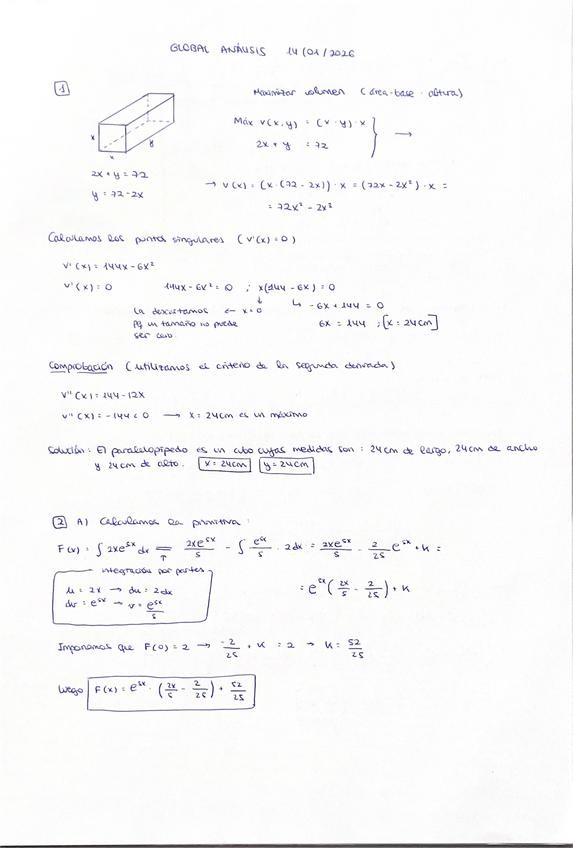 GLOBAL ANÁLISIS 14/01/2026
1
Maximizar volumen (área-base · altura)
Máx V(x,y) = (x·y)·x
2x + y = 72
x
x
y
2x + y = 72
y = 72 - 2x
→ V(x) = (x·(72 - 2x))·x = (72x - 2x²)·x =
= 72x² - 2x³
Calculamos los puntos singulares (V'(x) = 0)
V'(x) = 144x - 6x²
V'(x) = 0 144x - 6x² = 0 ; x(144 - 6x) = 0
La descartamos ← x = 0 ↳ -6x + 144 = 0
pq un tamaño no puede 6x = 144 ; [x = 24cm]
ser cero.
Comprobación (utilizamos el criterio de la segunda derivada)
V''(x) = 144 - 12x
V''(x) = -144 < 0 → x = 24cm es un máximo
Solución: El paralelepípedo es un cubo cuyas medidas son: 24cm de largo, 24cm de ancho
y 24cm de alto. x = 24cm y = 24cm
2 A) Calculamos la primitiva:
F(x) = ∫ 2xe^5x dx = 2xe^5x/5 - ∫ e^5x/5 · 2dx = 2xe^5x/5 - 2/25 e^5x + K =
↑
integración por partes
u = 2x → du = 2dx
dv = e^5x → v = e^5x/5
= e^5x (2x/5 - 2/25) + K
Imponemos que F(0) = 2 → -2/25 + K = 2 → K = 52/25
Luego F(x) = e^5x · (2x/5 - 2/25) + 52/25